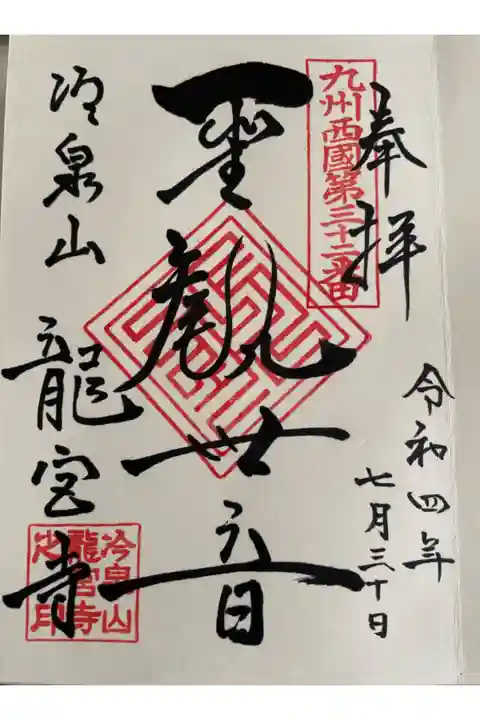 奉拝
九州西國第三十二番
令和四年
七月三十日
聖観世音
冷泉山 龍宮寺
冷泉山
龍宮寺
之印